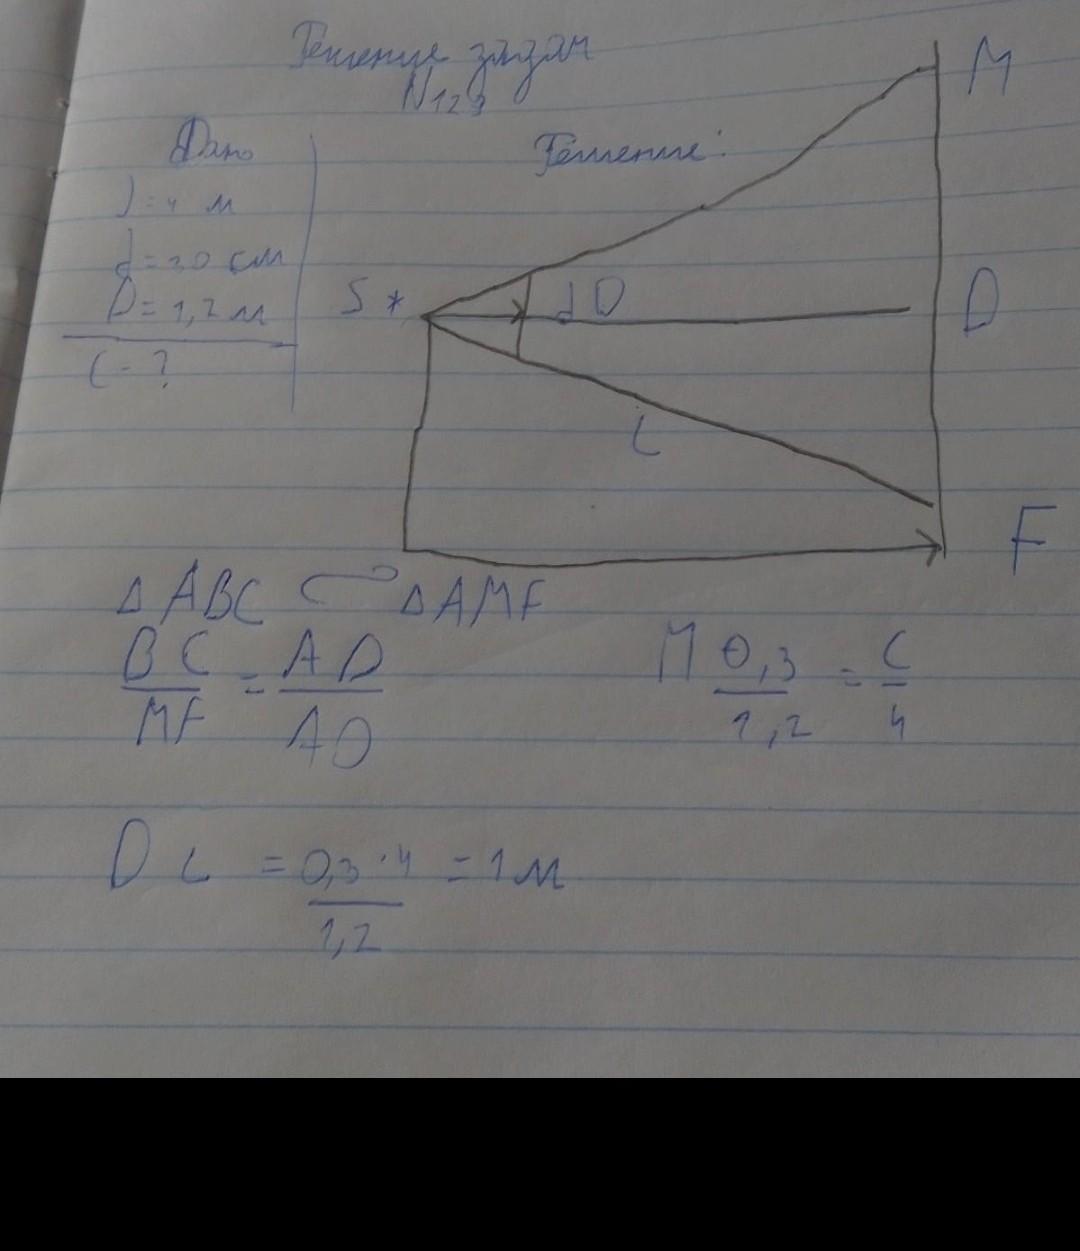 Решение задач
N123
Дано
l=4 м
d=30 см
D=1,2 м
L-?
Решение:
M
S *
d D
D
L
F
Δ ABC ∽ Δ AMF
BC/MF = AD/AD
M 0,3/1,2 = L/4
D L = 0,3·4/1,2 = 1 м